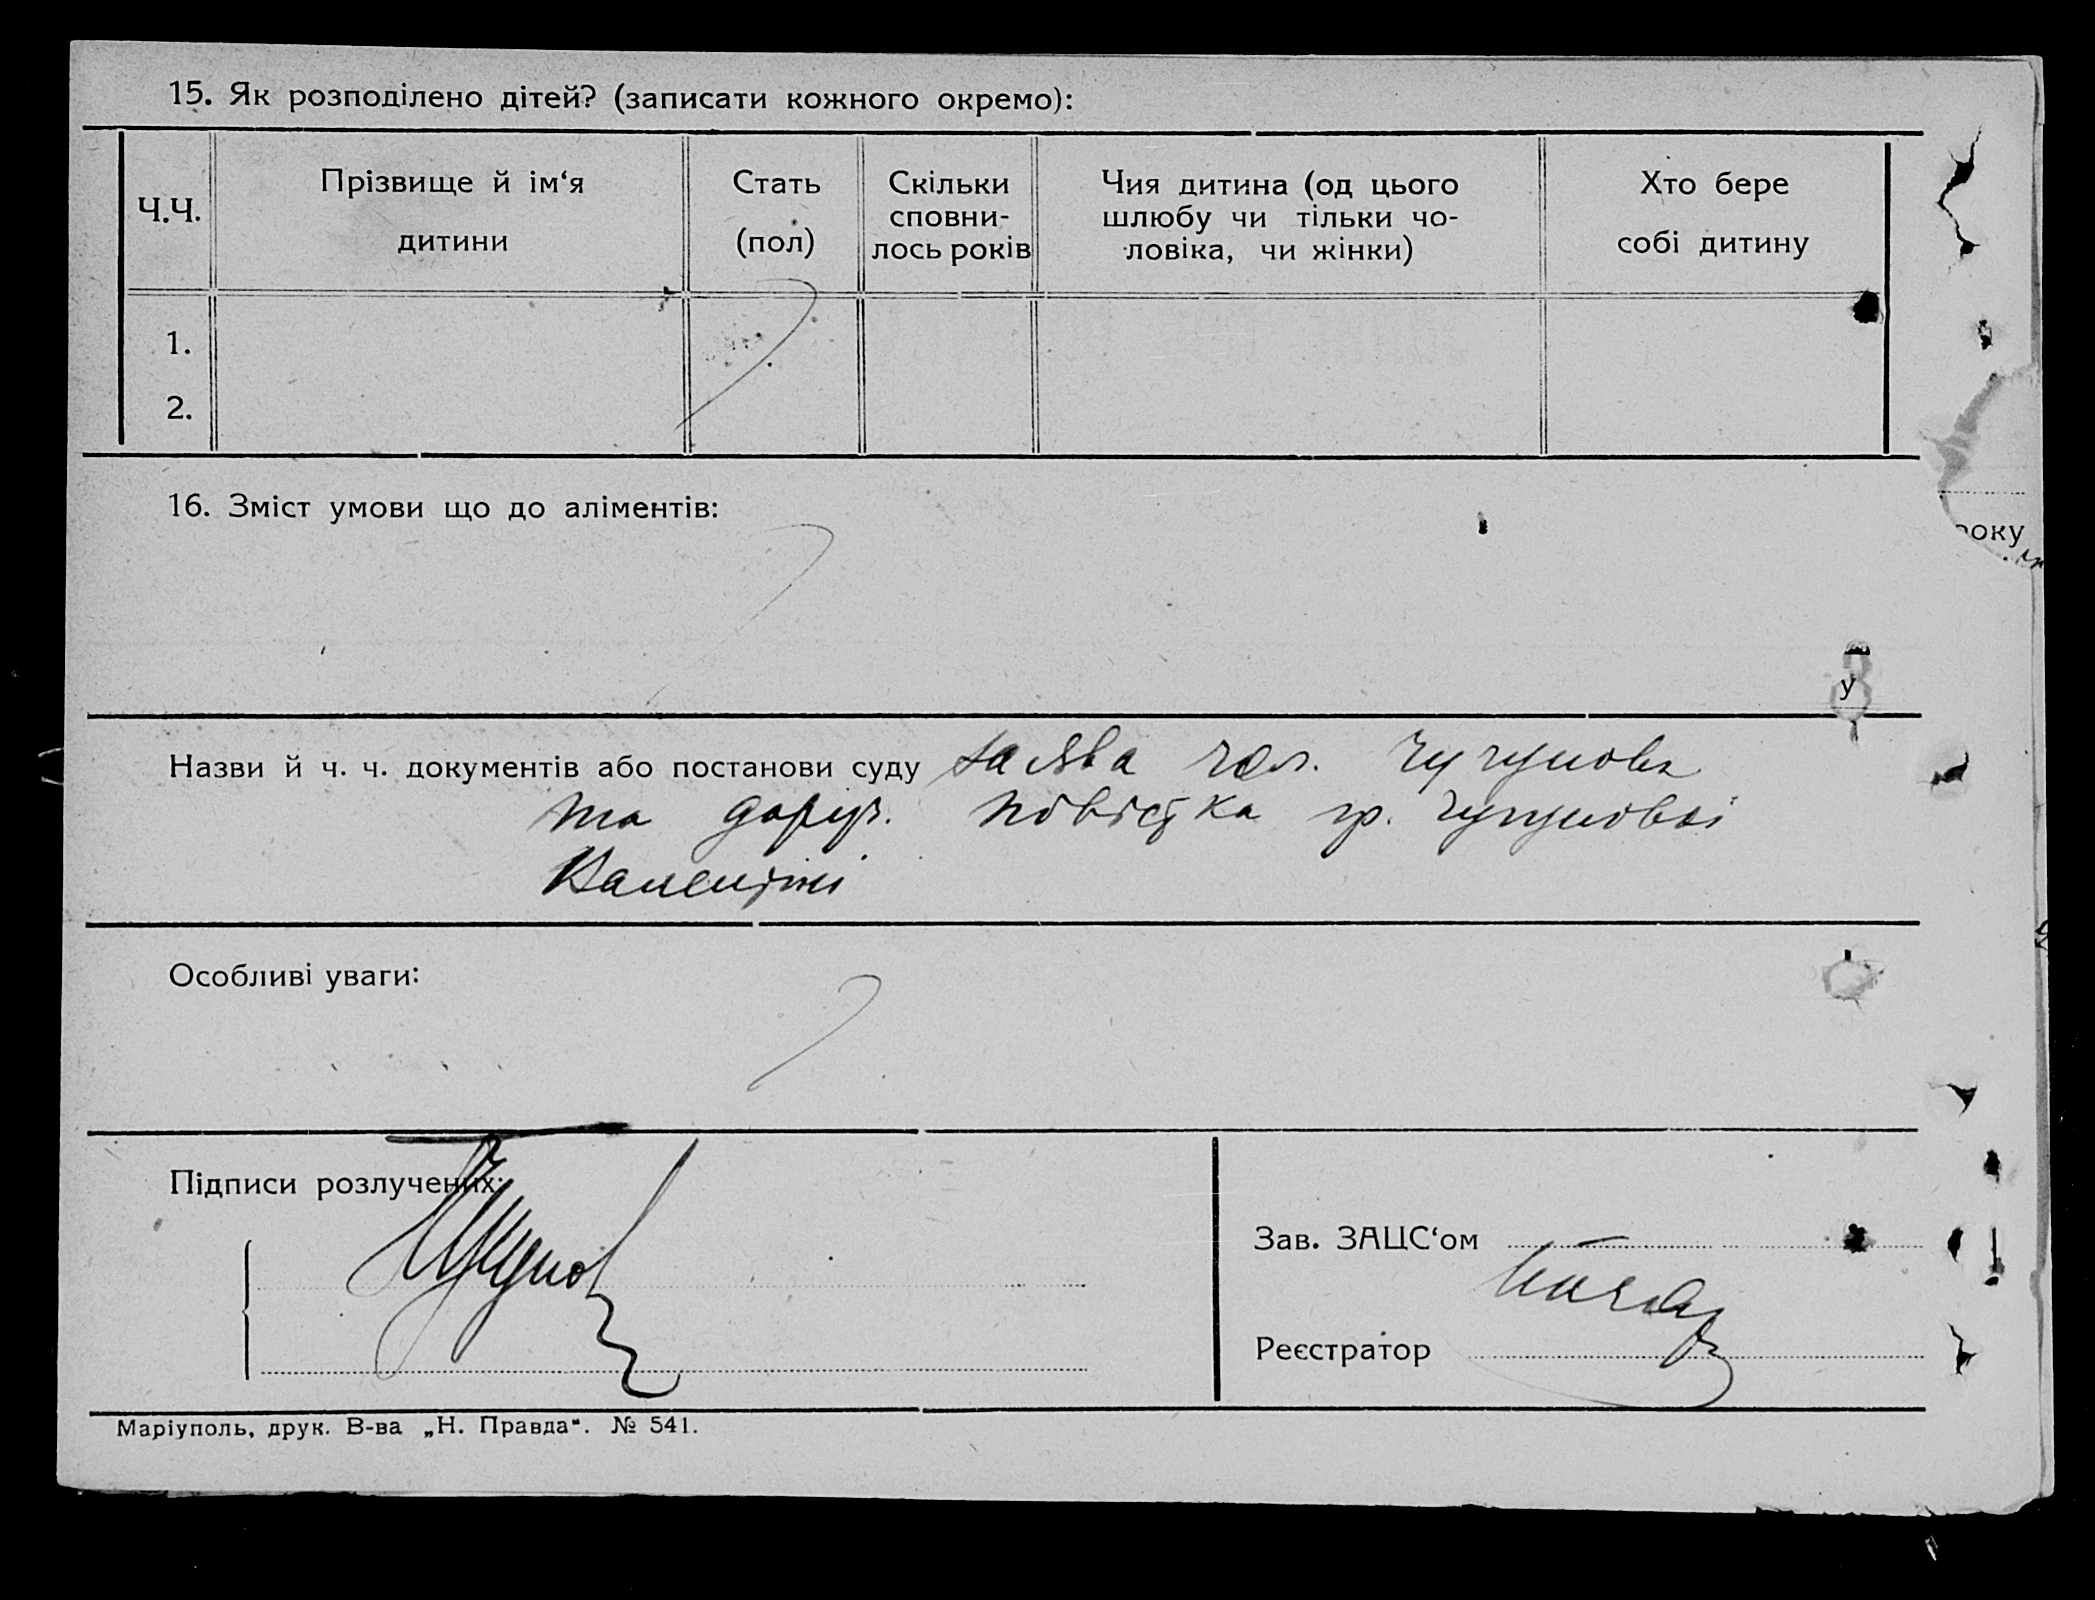 15. Як розподілено дітей? (записати кожного окремо):
Ч.Ч.
Прізвище й ім‘я
дитини
Стать
(пол)
Скільки
сповни-
лось років
Чия дитина (од цього
шлюбу чи тільки чо-
ловіка, чи жінки)
Хто бере
собі дитину
1.
2.
16. Зміст умови що до аліментів:
року
у
Назви й ч. ч. документів або постанови суду заява чол. Чугунова
та доруч. повістка гр. Чугуновій
Валентині
Особливі уваги:
Підписи розлучених:
Чугунов
Зав. ЗАЦС‘ом
Реєстратор
Маріуполь, друк. В-ва „Н. Правда“. № 541.